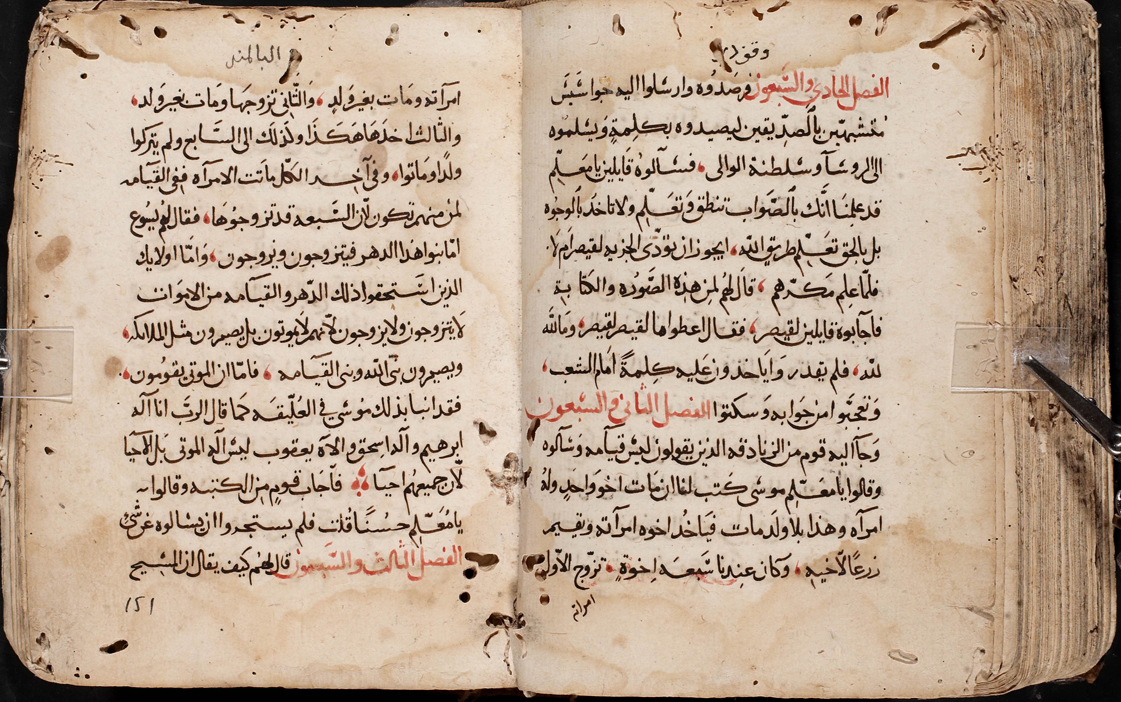 وقف دير
الفصل الحادي والسبعون فرصدوه وارسلوا اليه جواسيس
متشبهين بالصديقين ليصيدوه بكلمة ويسلموه
الى الروسآ وسلطنة الوالى، فسالوه قايلين يا معلم
قد علمنا انك بالصواب تنطق وتعلم ولا تاخذ بالوجوه
بل بالحق تعلم طريق الله، ايجوز ان نؤدى الجزيه لقيصر ام لا،
فلما علم مكرهم، قال لهم لمن هذه الصوره والكتابة
فاجابوه قايلين لقيصر، فقال اعطوا ما لقيصر لقيصر، وما لله
لله، فلم يقدروا ياخذون عليه كلمة امام الشعب،
وتعجبوا من جوابه وسكتوا الفصل الثانى والسبعون
وجآ اليه قوم من الزنادقه الذين يقولون ليس قيامه وسآلوه
وقالوا يا معلم موسى كتب لنا ان مات اخو واحد وله
امرآه وهذا بلا ولد مات فياخذ اخوه امرآته ويقيم
زرعا لآخيه، وكان عندنا سبعه اخوة، تزوج الآول
امراته
امرآته ومات بغير ولد، والثانى تزوجها ومات بغير ولد،
والثالث اخذها هكذا وكذلك الى السابع ولم يتركوا
ولدا وماتوا، وفى آخر الكل ماتت الامرآه ففى القيامه
لمن منهم تكون لآن السبعه قد تزوجوها، فقال لهم يسوع
اما بنوا هذا الدهر فيتزوجون ويزوجون، واما اولايك
الذين استحقوا ذلك الدهر والقيامه من الاموات
لا يتزوجون ولا يزوجون لآنهم لا يموتون بل يصيرون مثل الملايكه،
ويصيرون بنى الله وبنى القيامه، فاما ان الموتى يقومون،
فقد انبا بذلك موسى فى العليقه كما قال الرب انا اله
ابرهيم واله اسحق والاه يعقوب ليس اله الموتى بل الآحيا
لآن جميعهم احيا، فآجاب قوم من الكتبه وقالوا له
يا معلم حسنا قلت فلم يستجروا ان يسالوه عن شى
الفصل الثالث والسبعون قال لهم كيف يقال ان المسيح
١٥١